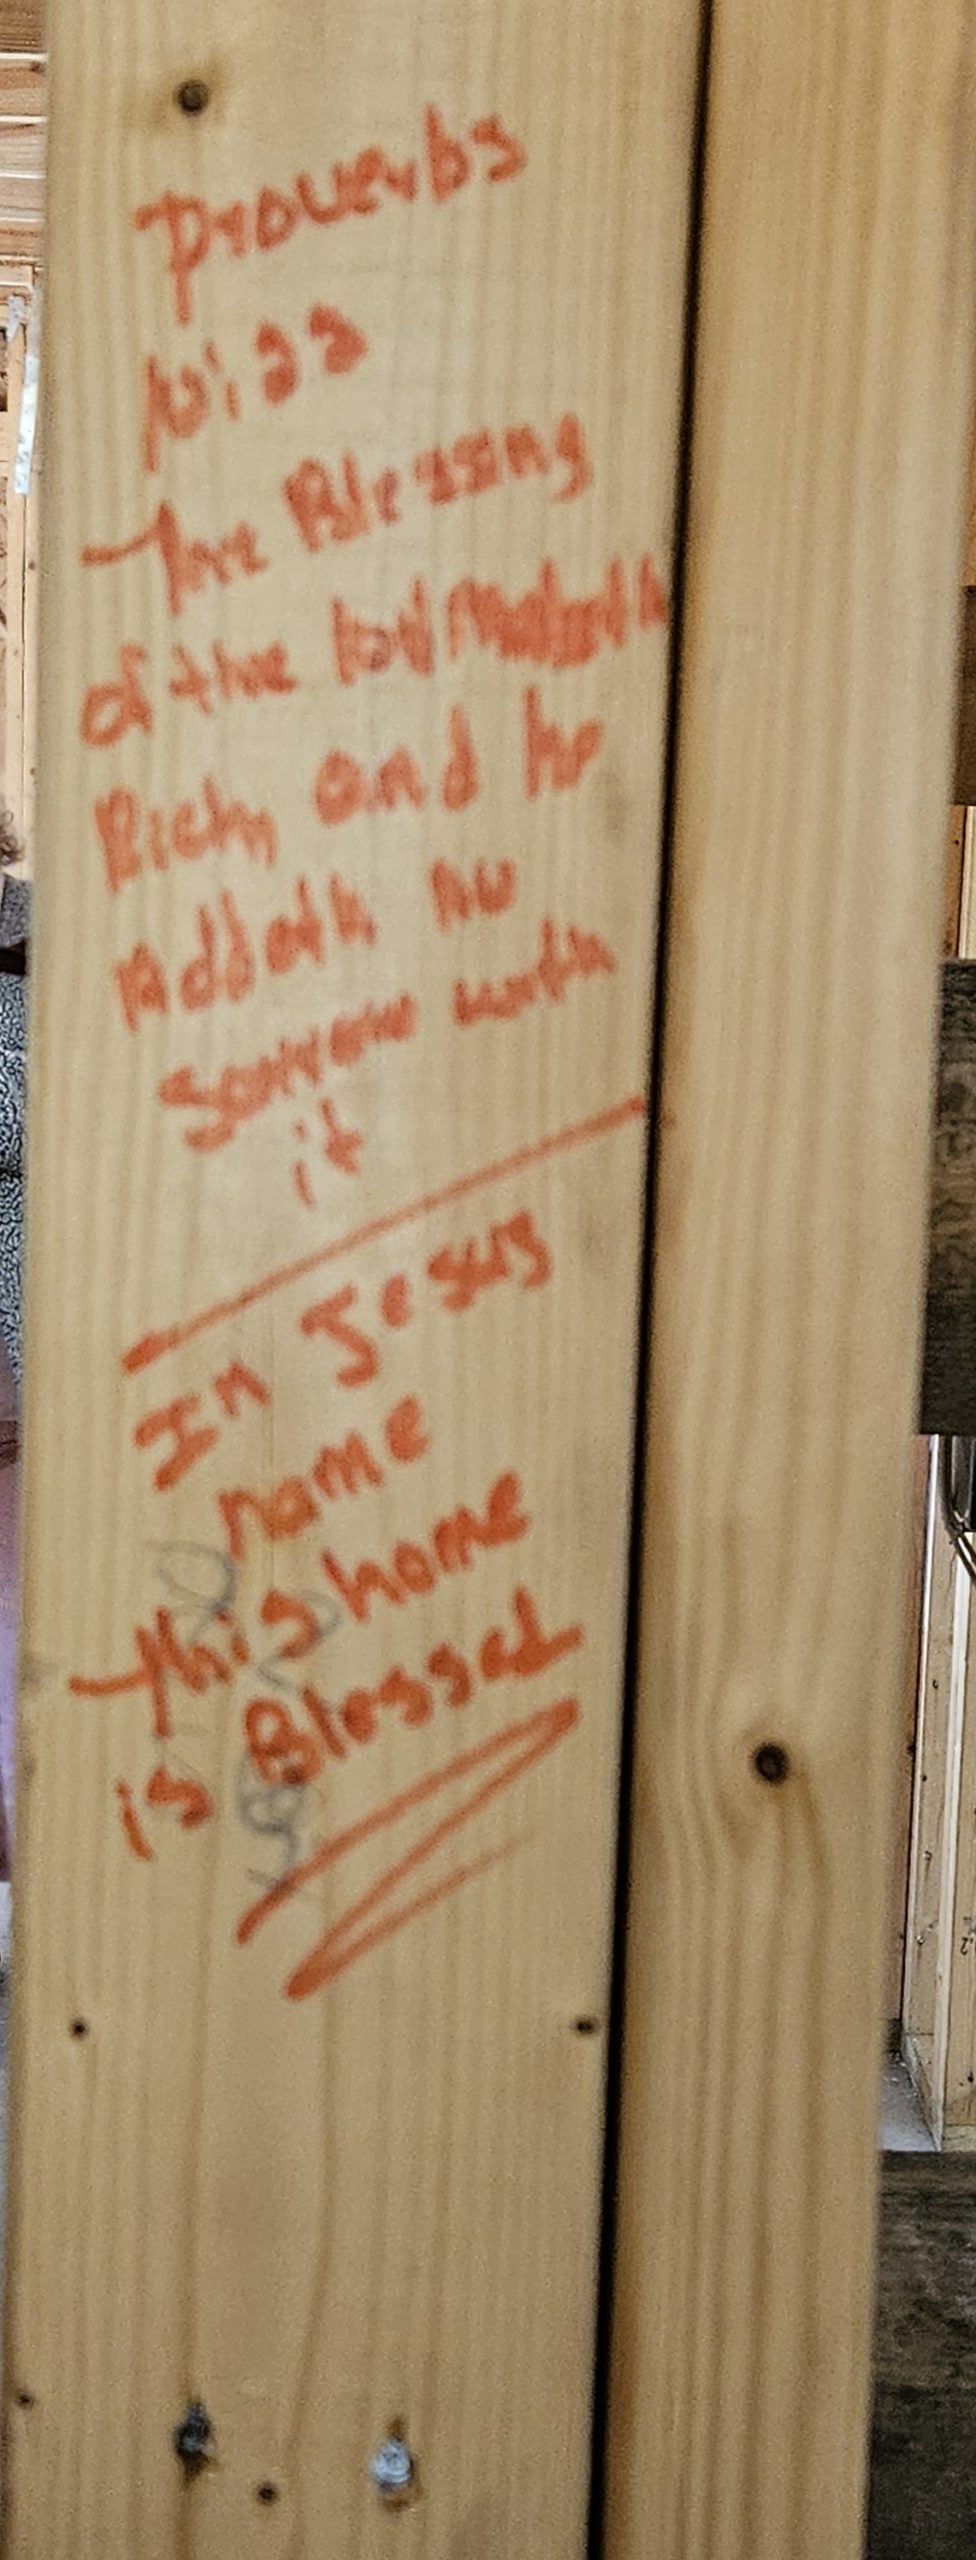 Proverbs
10:22
The Blessing
of the lord Maketh
Rich, and he
Addeth No
Sorrow with
it
In Jesus
name
this home
is Blessed